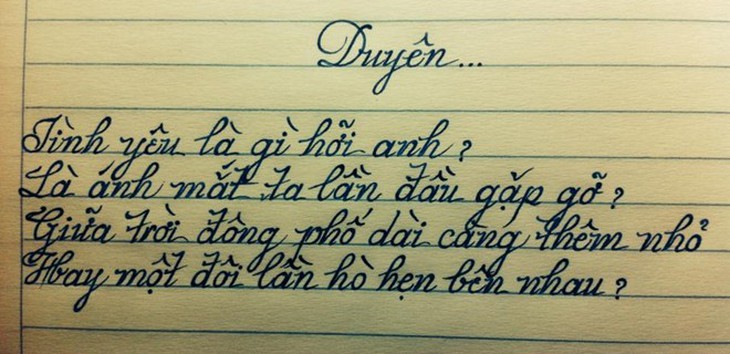 Duyên...
Tình yêu là gì hỡi anh?
Là ánh mắt ta lần đầu gặp gỡ?
Giữa trời đông phố dài càng thêm nhỏ
Hay một đôi lần hò hẹn bên nhau?